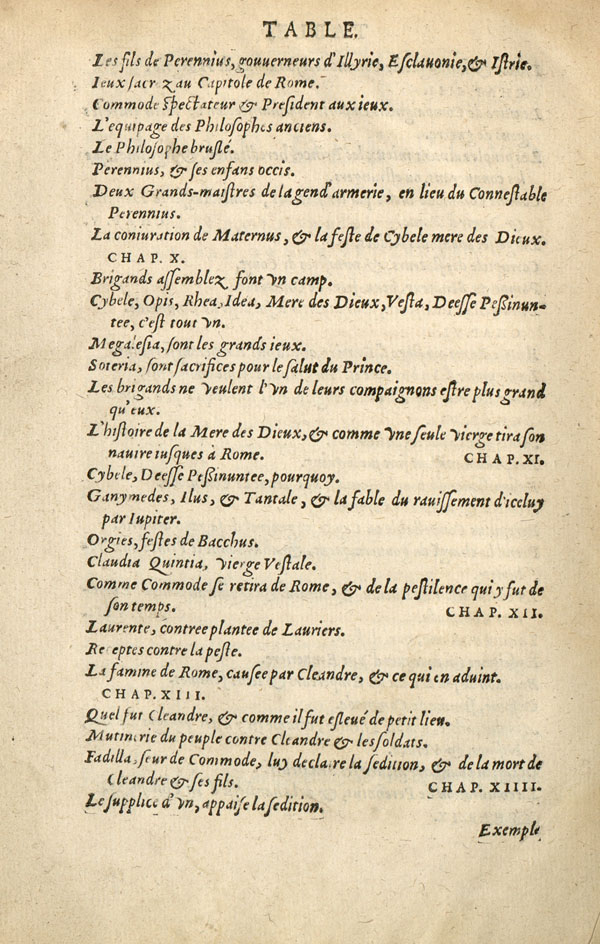 TABLE.
Les fils de Perennius, gouuerneurs d'Illyrie, Esclauonie, & Istrie.
Ieux sacrez au Capitole de Rome.
Commode spectateur & President aux ieux.
L'equipage des Philosophes anciens.
Le Philosophe bruslé.
Perennius, & ses enfans occis.
Deux Grands-maistres de la gend'armerie, en lieu du Connestable
Perennius.
La coniuration de Maternus, & la feste de Cybele mere des Dieux.
CHAP. X.
Brigands assemblez font vn camp.
Cybele, Opis, Rhea, Idea, Mere des Dieux, Vesta, Deesse Peßinun-
tee, c'est tout vn.
Megalesia, sont les grands ieux.
Soteria, sont sacrifices pour le salut du Prince.
Les brigands ne veulent l'vn de leurs compaignons estre plus grand
qu'eux.
L'histoire de la Mere des Dieux, & comme vne seule vierge tira son
nauire iusques à Rome. CHAP. XI.
Cybele, Deesse Peßinuntee, pourquoy.
Ganymedes, Ilus, & Tantale, & la fable du rauissement d'icelluy
par Iupiter.
Orgies, festes de Bacchus.
Claudia Quintia, vierge Vestale.
Comme Commode se retira de Rome, & de la pestilence qui y fut de
son temps. CHAP. XII.
Laurente, contree plantee de Lauriers.
Receptes contre la peste.
La famine de Rome, causee par Cleandre, & ce qui en aduint.
CHAP. XIII.
Quel fut Cleandre, & comme il fut esleué de petit lieu.
Mutinerie du peuple contre Cleandre & les soldats.
Fadilla, seur de Commode, luy declare la sedition, & de la mort de
Cleandre & ses fils. CHAP. XIIII.
Le supplice d'vn, appaise la sedition.
Exemple